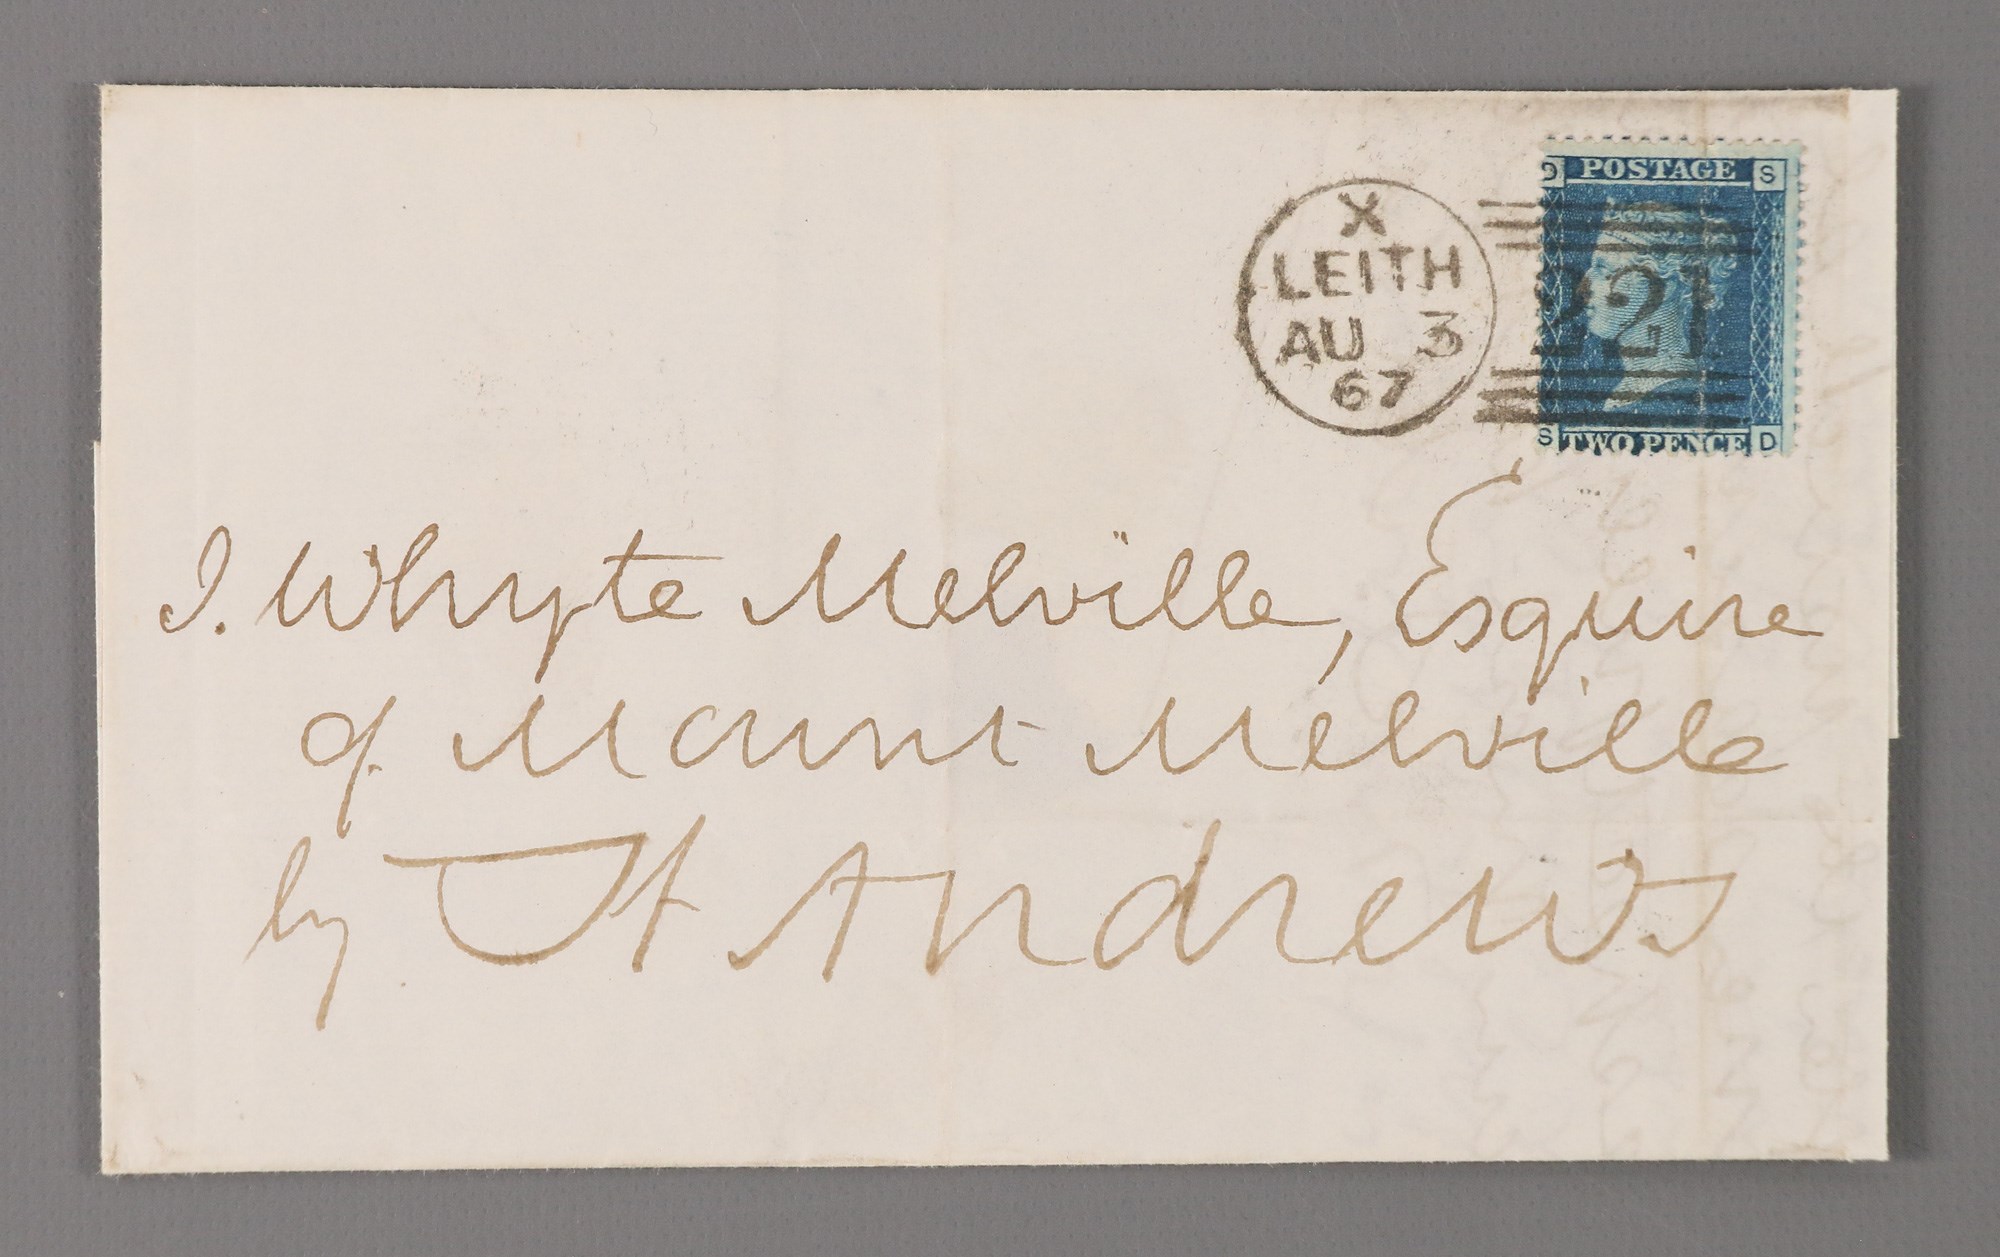 D POSTAGE S
X
LEITH
AU 3
67
221
S TWO PENCE D
J. Whyte Melville, Esquire
of Mount Melville
by St Andrews